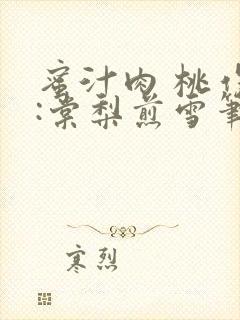 蜜汁肉桃作
:棠梨煎雪笔
寒烈